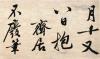 月十又
八日抱
齋居
不廢葉